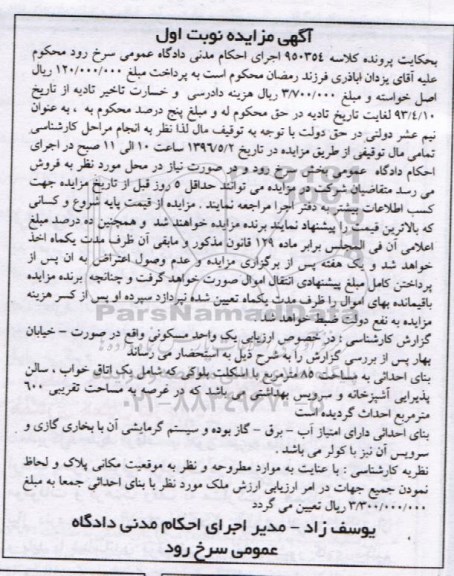 آگهی مزایده نوبت اول
بحکایت پرونده کلاسه ۹۵۰۳۵۴ اجرای احکام مدنی دادگاه عمومی سرخ رود محکوم
علیه آقای یزدان اباذری فرزند رمضان محکوم است به پرداخت مبلغ ۱۲۰/۰۰۰/۰۰۰ ریال
اصل خواسته و مبلغ ۳/۷۰۰/۰۰۰ ریال هزینه دادرسی و خسارت تاخیر تادیه از تاریخ
۹۳/۴/۱۰ لغایت تاریخ تادیه در حق محکوم له و مبلغ پنج درصد محکوم به ، به عنوان
نیم عشر دولتی در حق دولت با توجه به توقیف مال لذا نظر به انجام مراحل کارشناسی
تمامی مال توقیفی از طریق مزایده در تاریخ ۱۳۹۶/۵/۲ ساعت ۱۰ الی ۱۱ صبح در اجرای
احکام دادگاه عمومی بخش سرخ رود و در صورت نیاز در محل مورد نظر به فروش
می رسد متقاضیان شرکت در مزایده می توانند حداقل ۵ روز قبل از تاریخ مزایده جهت
کسب اطلاعات بیشتر به دفتر اجرا مراجعه نمایند . مزایده از قیمت پایه شروع و کسانی
که بالاترین قیمت را پیشنهاد نمایند برنده مزایده خواهند شد و همچنین ده درصد مبلغ
اعلامی آن فی المجلس برابر ماده ۱۲۹ قانون مذکور و مابقی آن ظرف مدت یکماه اخذ
خواهد شد و یک هفته پس از برگزاری مزایده و عدم وصول اعتراض به ان پس از
پرداختن کامل مبلغ پیشنهادی انتقال اموال صورت خواهد گرفت و چنانچه برنده مزایده
باقیمانده بهای اموال را ظرف مدت یکماه تعیین شده نپردازد سپرده او پس از کسر هزینه
مزایده به نفع دولت ضبط خواهد شد.
گزارش کارشناسی : در خصوص ارزیابی یک واحد مسکونی واقع در صورت – خیابان
بهار پس از بررسی گزارش را به شرح ذیل به استحضار می رساند
بنای احداثی به مساحت ۸۵ مترمربع با اسکلت بلوکی که شامل یک اتاق خواب ، سالن
پذیرایی آشپزخانه و سرویس بهداشتی می باشد که در عرصه به مساحت تقریبی ۶۰۰
مترمربع احداث گردیده است
بنای احداثی دارای امتیاز آب – برق – گاز بوده و سیستم گرمایشی آن با بخاری گازی و
سرویس آن نیز با کولر می باشد .
نظریه کارشناسی : با عنایت به موارد مطروحه و نظر به موقعیت مکانی پلاک و لحاظ
نمودن جمیع جهات در امر ارزیابی ارزش ملک مورد نظر با بنای احداثی جمعا به مبلغ
۳/۳۰۰/۰۰۰/۰۰۰ ریال تعیین می گردد
یوسف زاد – مدیر اجرای احکام مدنی دادگاه
عمومی سرخ رود
ParsNamadData
۰۲۱-۸۸۳۴۹۶۷۰